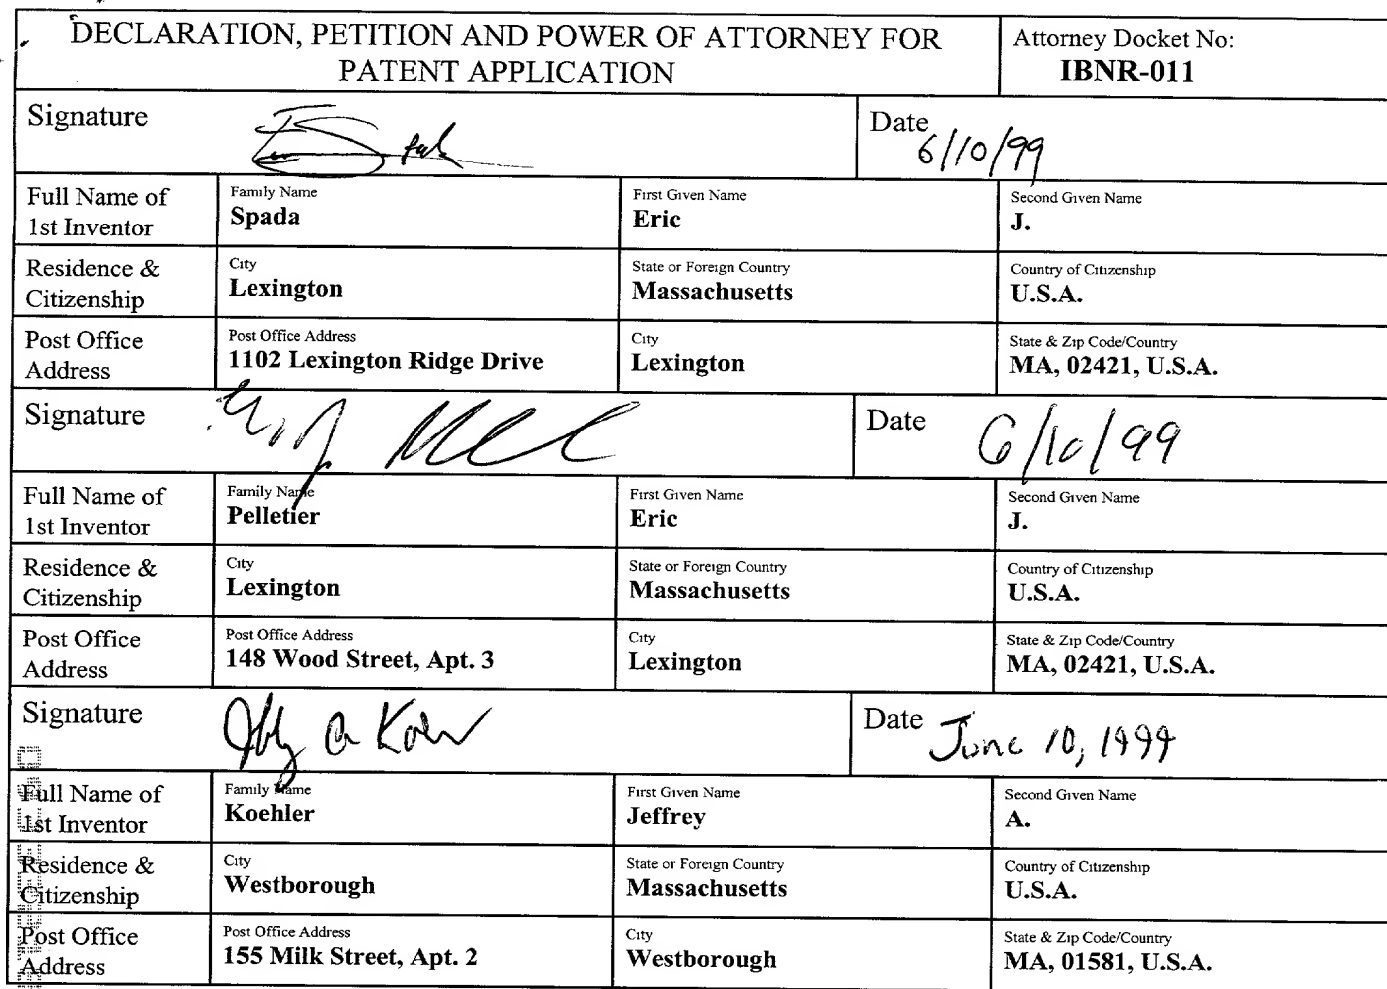 DECLARATION, PETITION AND POWER OF ATTORNEY FOR PATENT APPLICATION
Attorney Docket No:
IBNR-011
Signature
Date 6/10/99
Full Name of 1st Inventor
Family Name
Spada
First Given Name
Eric
Second Given Name
J.
Residence & Citizenship
City
Lexington
State or Foreign Country
Massachusetts
Country of Citizenship
U.S.A.
Post Office Address
Post Office Address
1102 Lexington Ridge Drive
City
Lexington
State & Zip Code/Country
MA, 02421, U.S.A.
Signature
Date 6/10/99
Full Name of 1st Inventor
Family Name
Pelletier
First Given Name
Eric
Second Given Name
J.
Residence & Citizenship
City
Lexington
State or Foreign Country
Massachusetts
Country of Citizenship
U.S.A.
Post Office Address
Post Office Address
148 Wood Street, Apt. 3
City
Lexington
State & Zip Code/Country
MA, 02421, U.S.A.
Signature
Date June 10, 1999
Full Name of 1st Inventor
Family Name
Koehler
First Given Name
Jeffrey
Second Given Name
A.
Residence & Citizenship
City
Westborough
State or Foreign Country
Massachusetts
Country of Citizenship
U.S.A.
Post Office Address
Post Office Address
155 Milk Street, Apt. 2
City
Westborough
State & Zip Code/Country
MA, 01581, U.S.A.